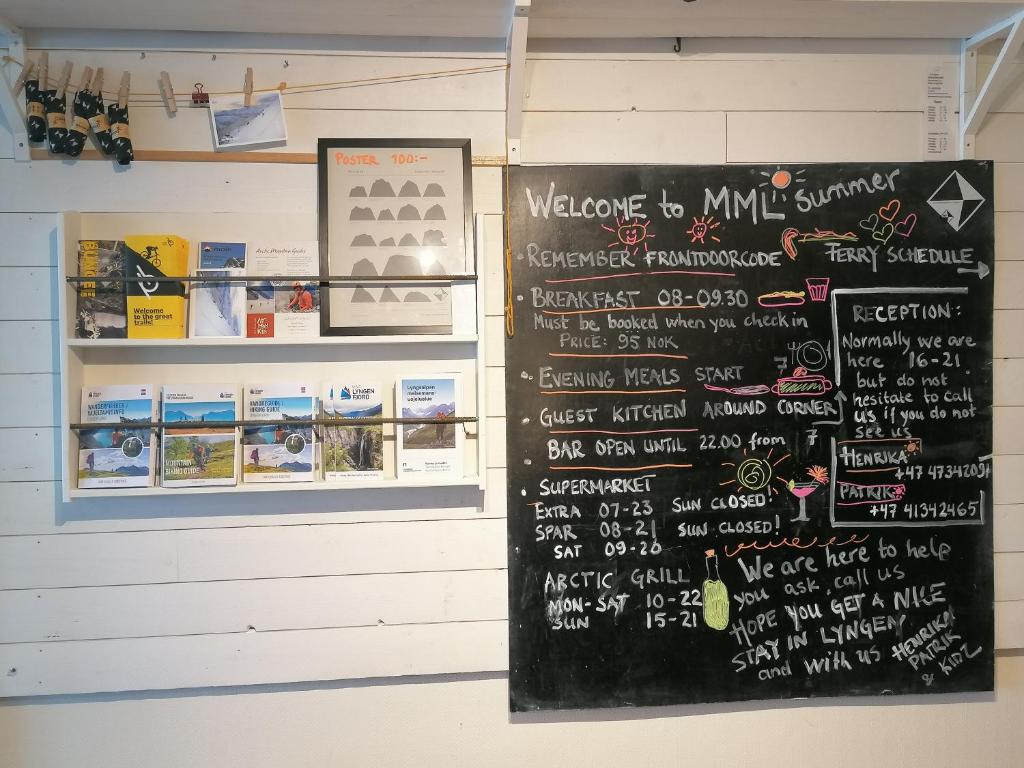 POSTER 100:-
Welcome
to the great
trails!
Arctic Mountain Guides
WANDERFÜHRER /
MOUNTAIN
BIKING GUIDE
HIKING GUIDE
VISIT
LYNGEN
FJORD
Lyngsalpan
WELCOME to MML summer
REMEMBER FRONTDOORCODE
FERRY SCHEDULE
BREAKFAST 08-09.30
Must be booked when you check in
PRICE: 95 NOK
EVENING MEALS START
7
GUEST KITCHEN AROUND CORNER
BAR OPEN UNTIL 22.00 from 7
SUPERMARKET
EXTRA 07-23 SUN CLOSED!
SPAR 08-21 SUN CLOSED!
SAT 09-20
ARCTIC GRILL
MON-SAT 10-22
SUN 15-21
RECEPTION:
Normally we are
here 16-21
but do not
hesitate to call
us if you do not
see us
HENRIKA
PATRIK
+47 41342465
We are here to help
you ask, call us
HOPE YOU GET A NICE
STAY IN LYNGEN
and with us HENRIKA
PATRIK
& KIDZ